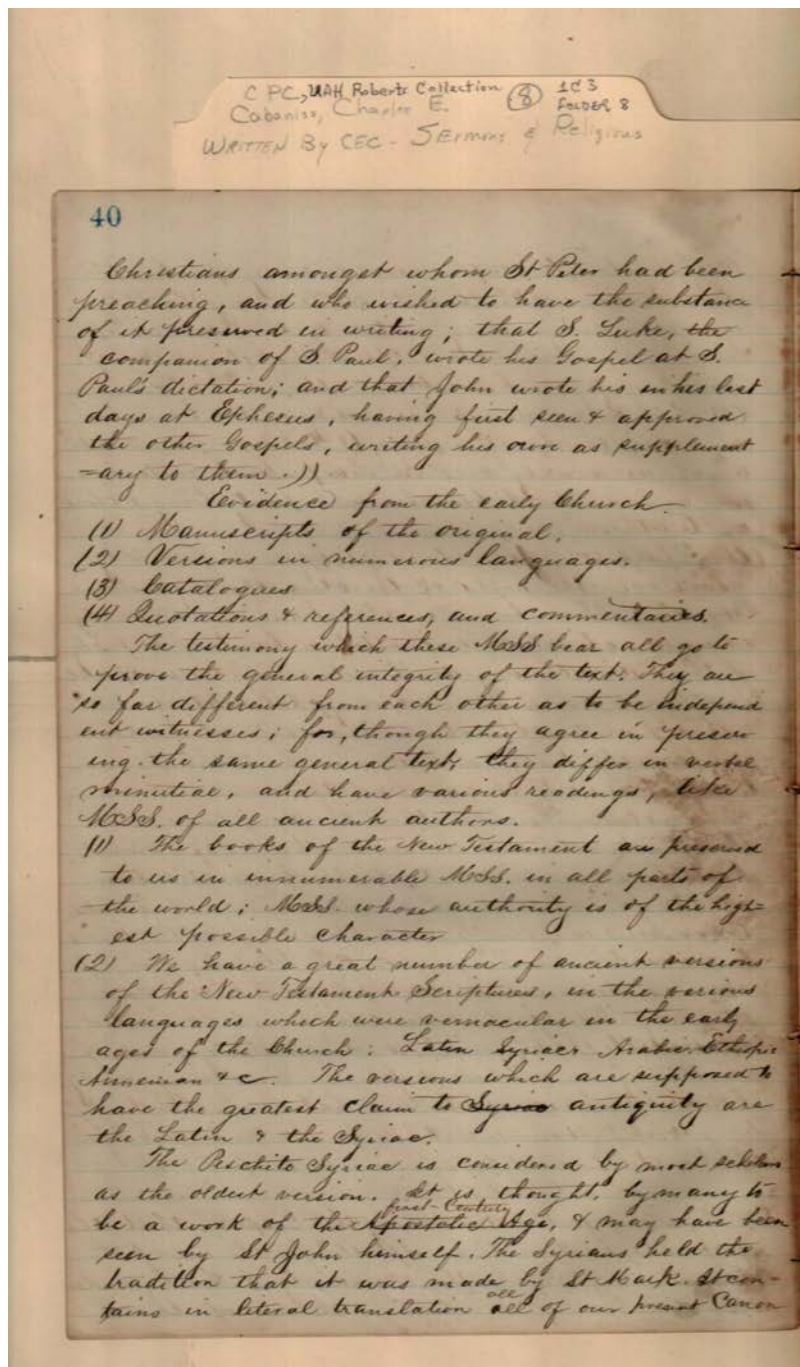 C PC, UAH Roberts Collection (8) 1C3
Cabaniss, Charles E. FOLDER 8
WRITTEN By CEC - SERMONS & Religious
40
Christians amongst whom St Peter had been
preaching, and who wished to have the substance
of it preserved in writing; that S. Luke, the
companion of S. Paul, wrote his Gospel at S.
Paul's dictation; and that John wrote his in his last
days at Ephesus, having first seen & approved
the other Gospels, writing his own as supplement
=ary to them.))
Evidence from the early Church.
(1) Manuscripts of the original.
(2) Versions in numerous languages.
(3) Catalogues
(4) Quotations & references, and commentaries.
The testimony which these MSS bear all go to
prove the general integrity of the text. They are
so far different from each other as to be independ
ent witnesses; for, though they agree in preserv
ing the same general text, they differ in verbal
minutiae, and have various readings, like
MSS. of all ancient authors.
(1) The books of the New Testament are preserved
to us in innumerable MSS. in all parts of
the world; MSS. whose authority is of the high=
est possible character
(2) We have a great number of ancient versions
of the New Testament Scriptures, in the various
languages which were vernacular in the early
ages of the Church: Latin Syriac Arabic Ethiopic
Armenian &c. The versions which are supposed to
have the greatest claim to Syriac antiquity are
the Latin & the Syriac.
The Peschito Syriac is considered by most scholars
as the oldest version. It is thought, by many to
first Century
be a work of the Apostolic Age, & may have been
seen by St John himself. The Syrians held the
tradition that it was made by St Mark. It con-
all
tains in literal translation all of our present Canon